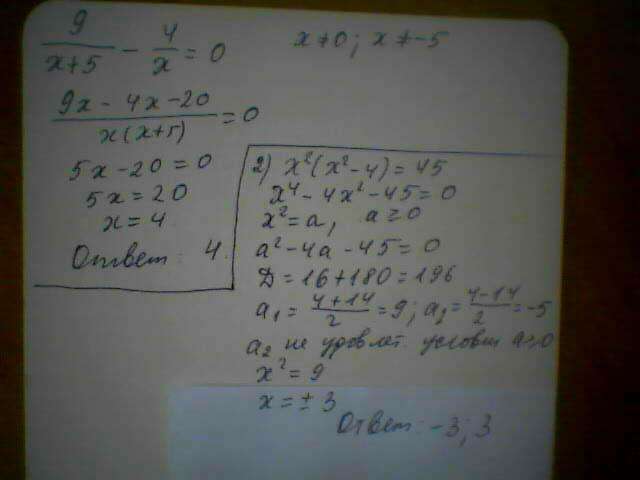 9/(x+5) - 4/x = 0    x≠0; x≠-5
(9x - 4x - 20)/(x(x+5)) = 0
5x - 20 = 0
5x = 20
x = 4
Ответ: 4.
2) x²(x² - 4) = 45
x⁴ - 4x² - 45 = 0
x² = a, a ≥ 0
a² - 4a - 45 = 0
Д = 16 + 180 = 196
a₁ = (4+14)/2 = 9; a₂ = (4-14)/2 = -5
a₂ не удовлет. условии a≥0
x² = 9
x = ± 3
Ответ: -3; 3